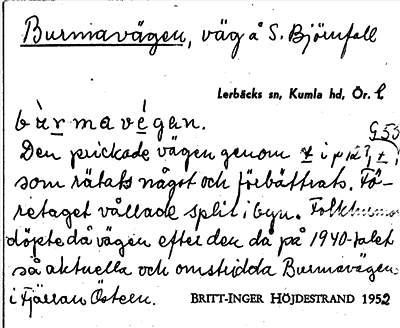 Burmavägen, väg å S. Björnfall
Lerbäcks sn, Kumla hd, Ör. l
bùrmavégan.
Den prickade vägen genom
som rätats något och förbättrats. Fö-
retaget vållade split i byn. Folkhumor
döpte då vägen efter den då på 1940-talet
så aktuella och omstridda Burmavägen
i Fjärran Östern. BRITT-INGER HÖJDESTRAND 1952